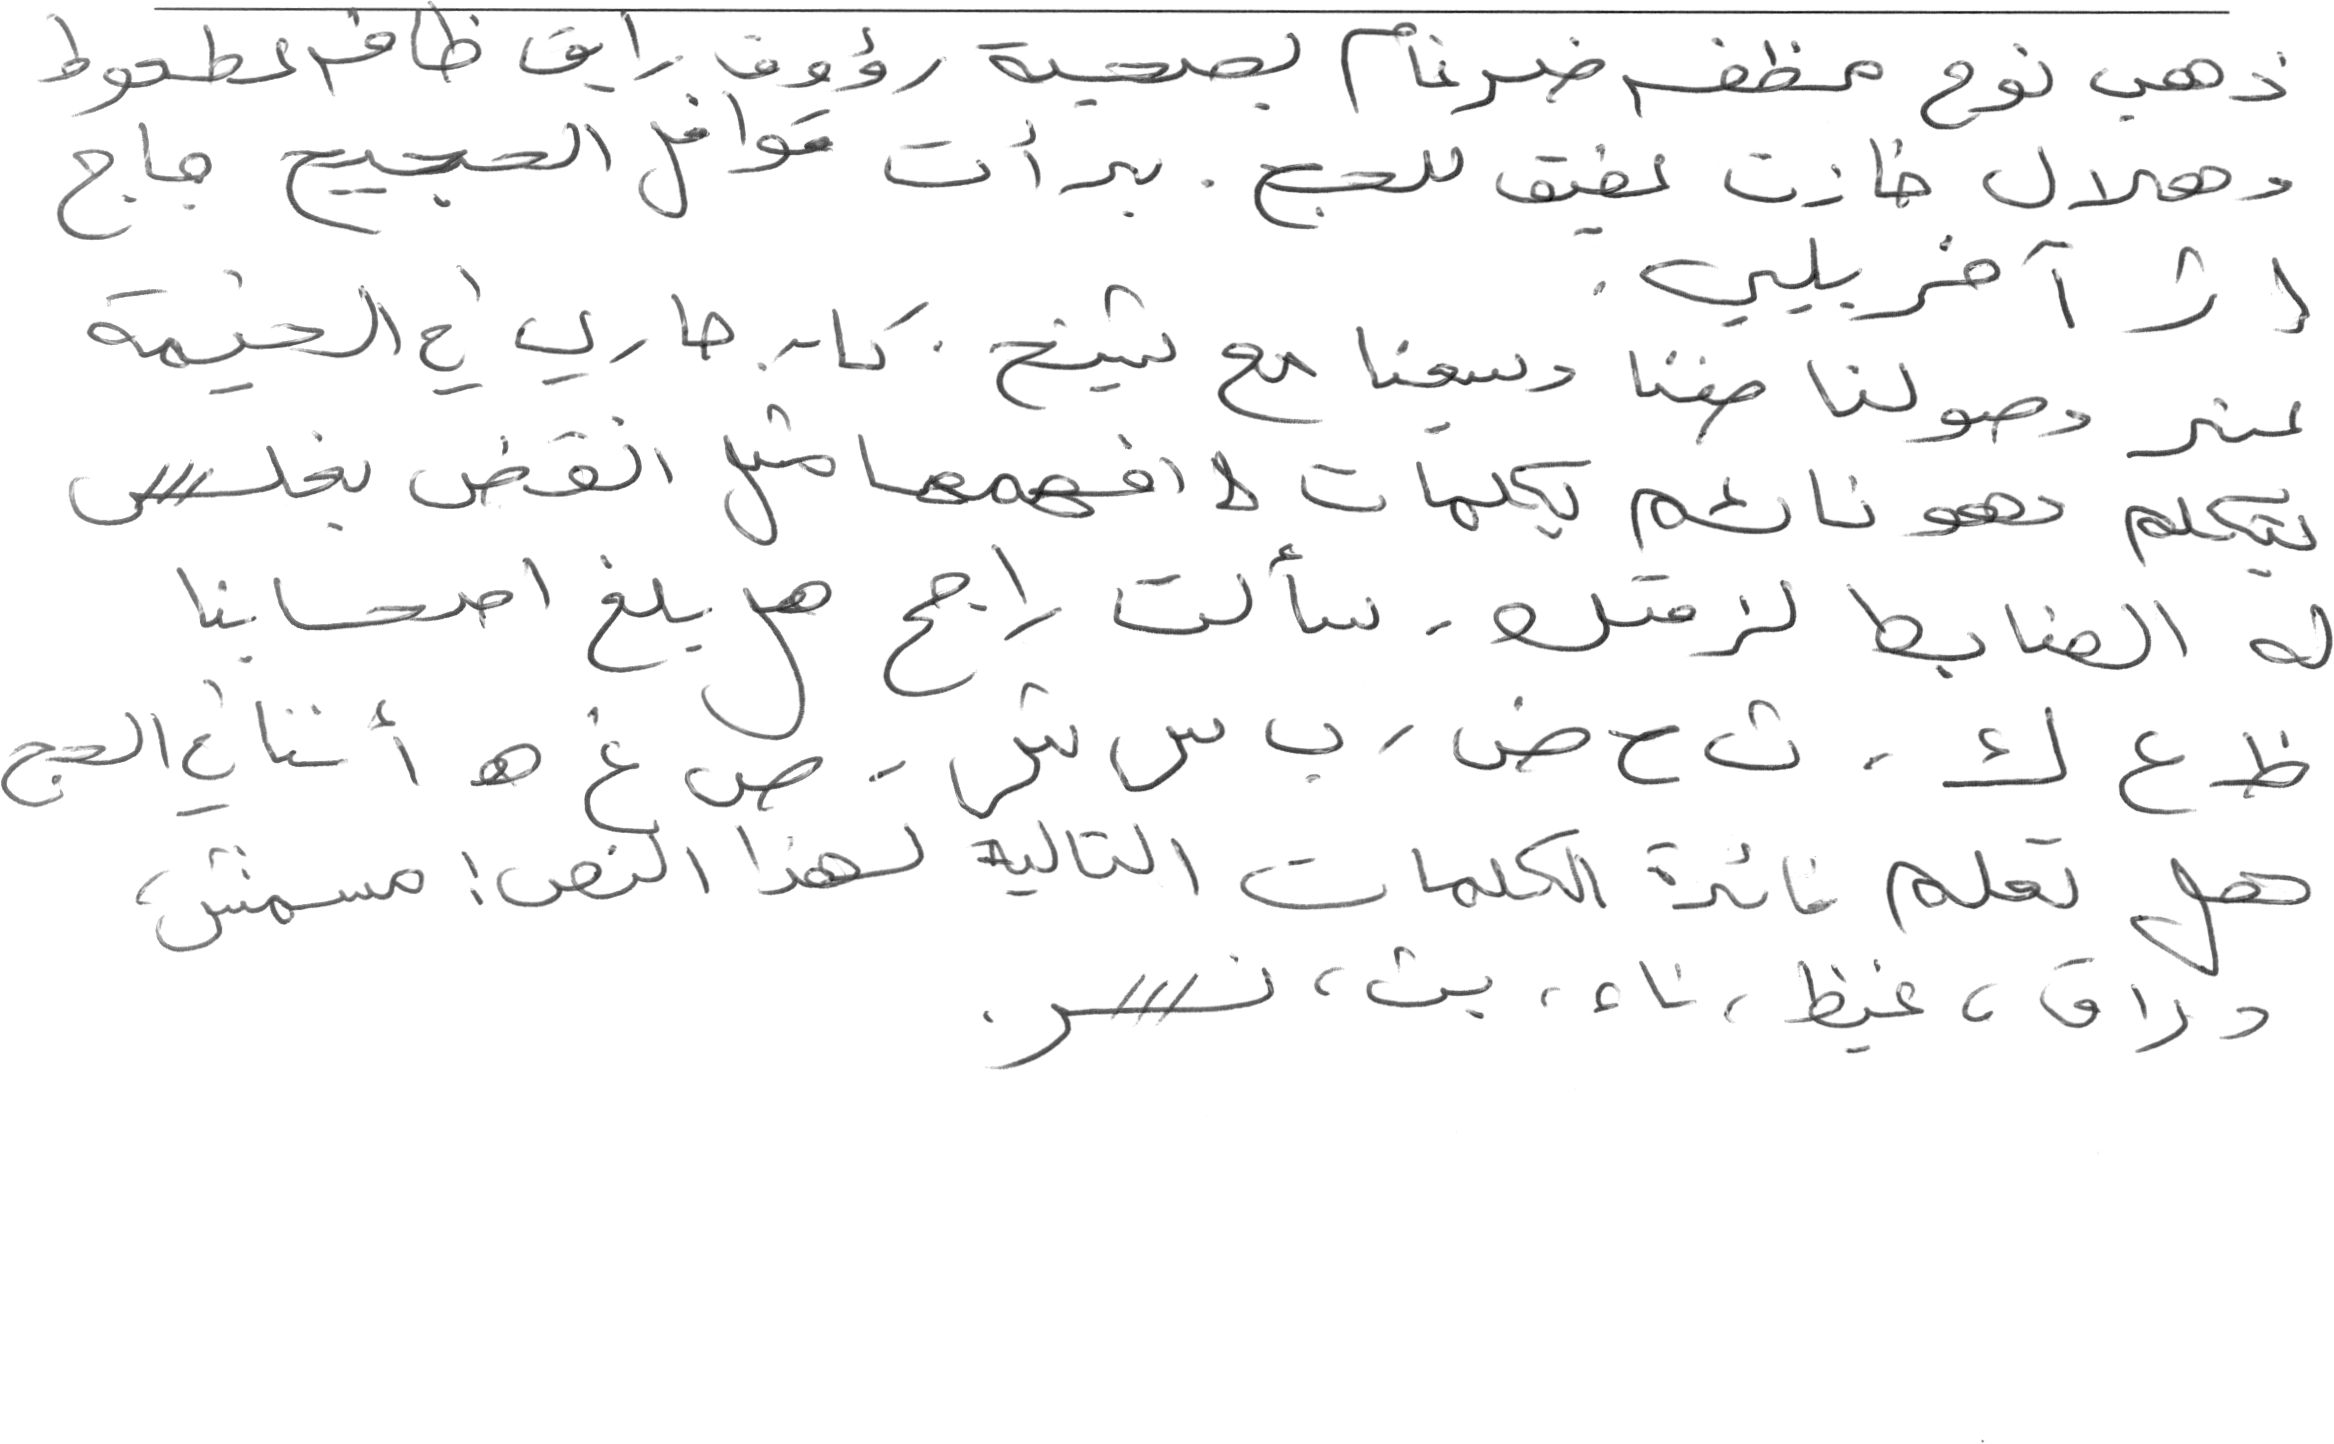 ذهب نوح مظفر ضرغام بصحبة رؤوف رايق ظافر عطعوط
وهلال حازت لفيق للحج. بدأت قوافل الحجيج هاج
لاز آخر يلي.
عند وصولنا صفنا وسعينا مع شيخ. كان جاري في الخيمة
يتكلم وهو نائم بكلمات لا افهمها مثل انقض بخلسس
له الضابط لزمتله. سألت راجح هل بلغ اصحابنا
ظ ع ك. ث ح ض ر ب س ش ز ص غ ه أثناء الحج
هل تعلم فائدة الكلمات التالية لهذا النص: مسمش،
دراق، غيظ، ناء، بث، نسر.